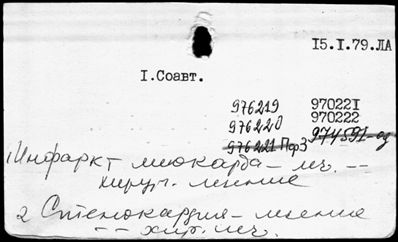 15.I.79.ЛА
I.Соавт.
976219 970221
976220 970222
976221 Пер3 974591-од
1 Инфаркт миокарда - леч. --
хирур. лечение
2 Стенокардия - лечение
-- хир. леч.